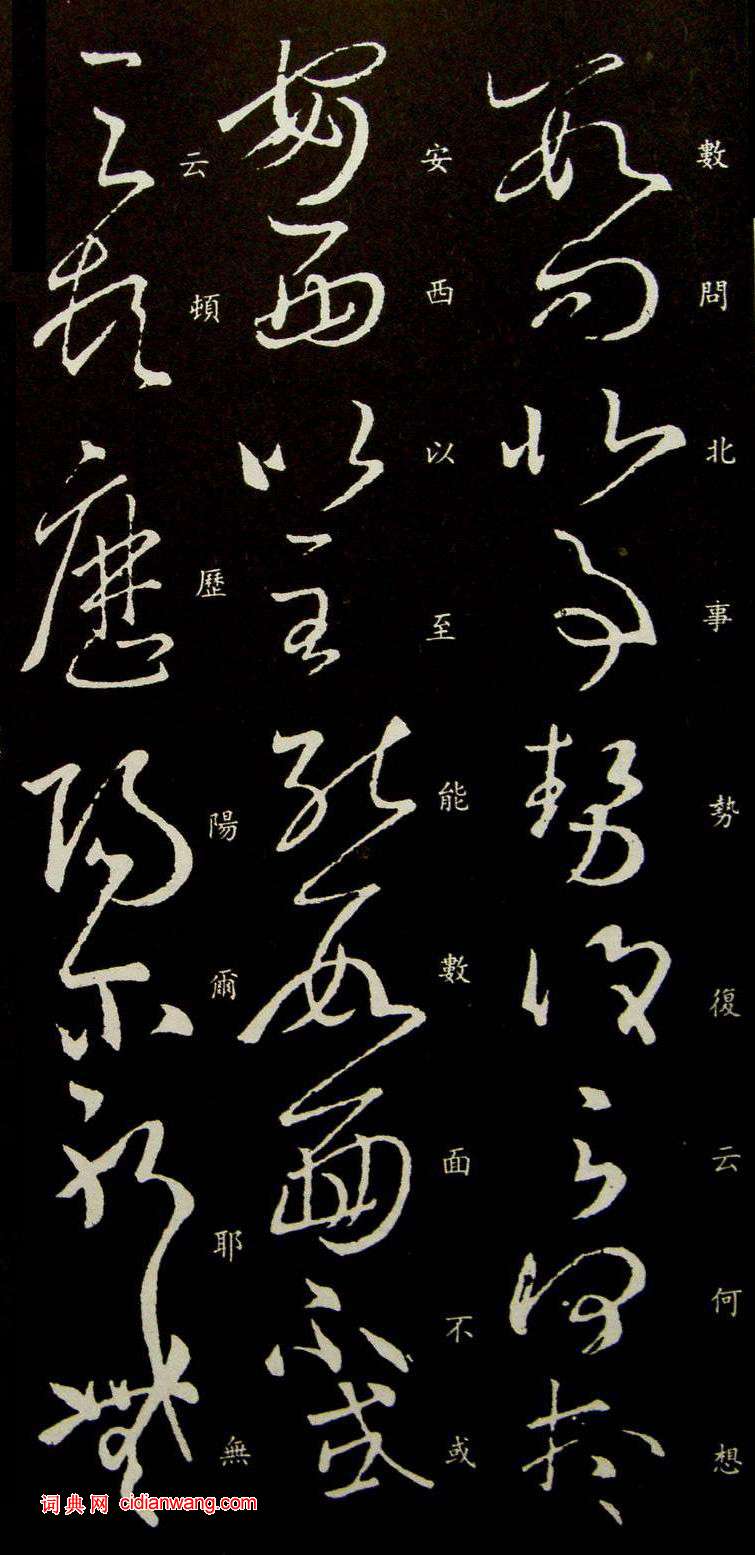 數問北事勢復云何想
安西以至能數面不或
云頓歷陽爾耶無
词典网 cidianwang.com